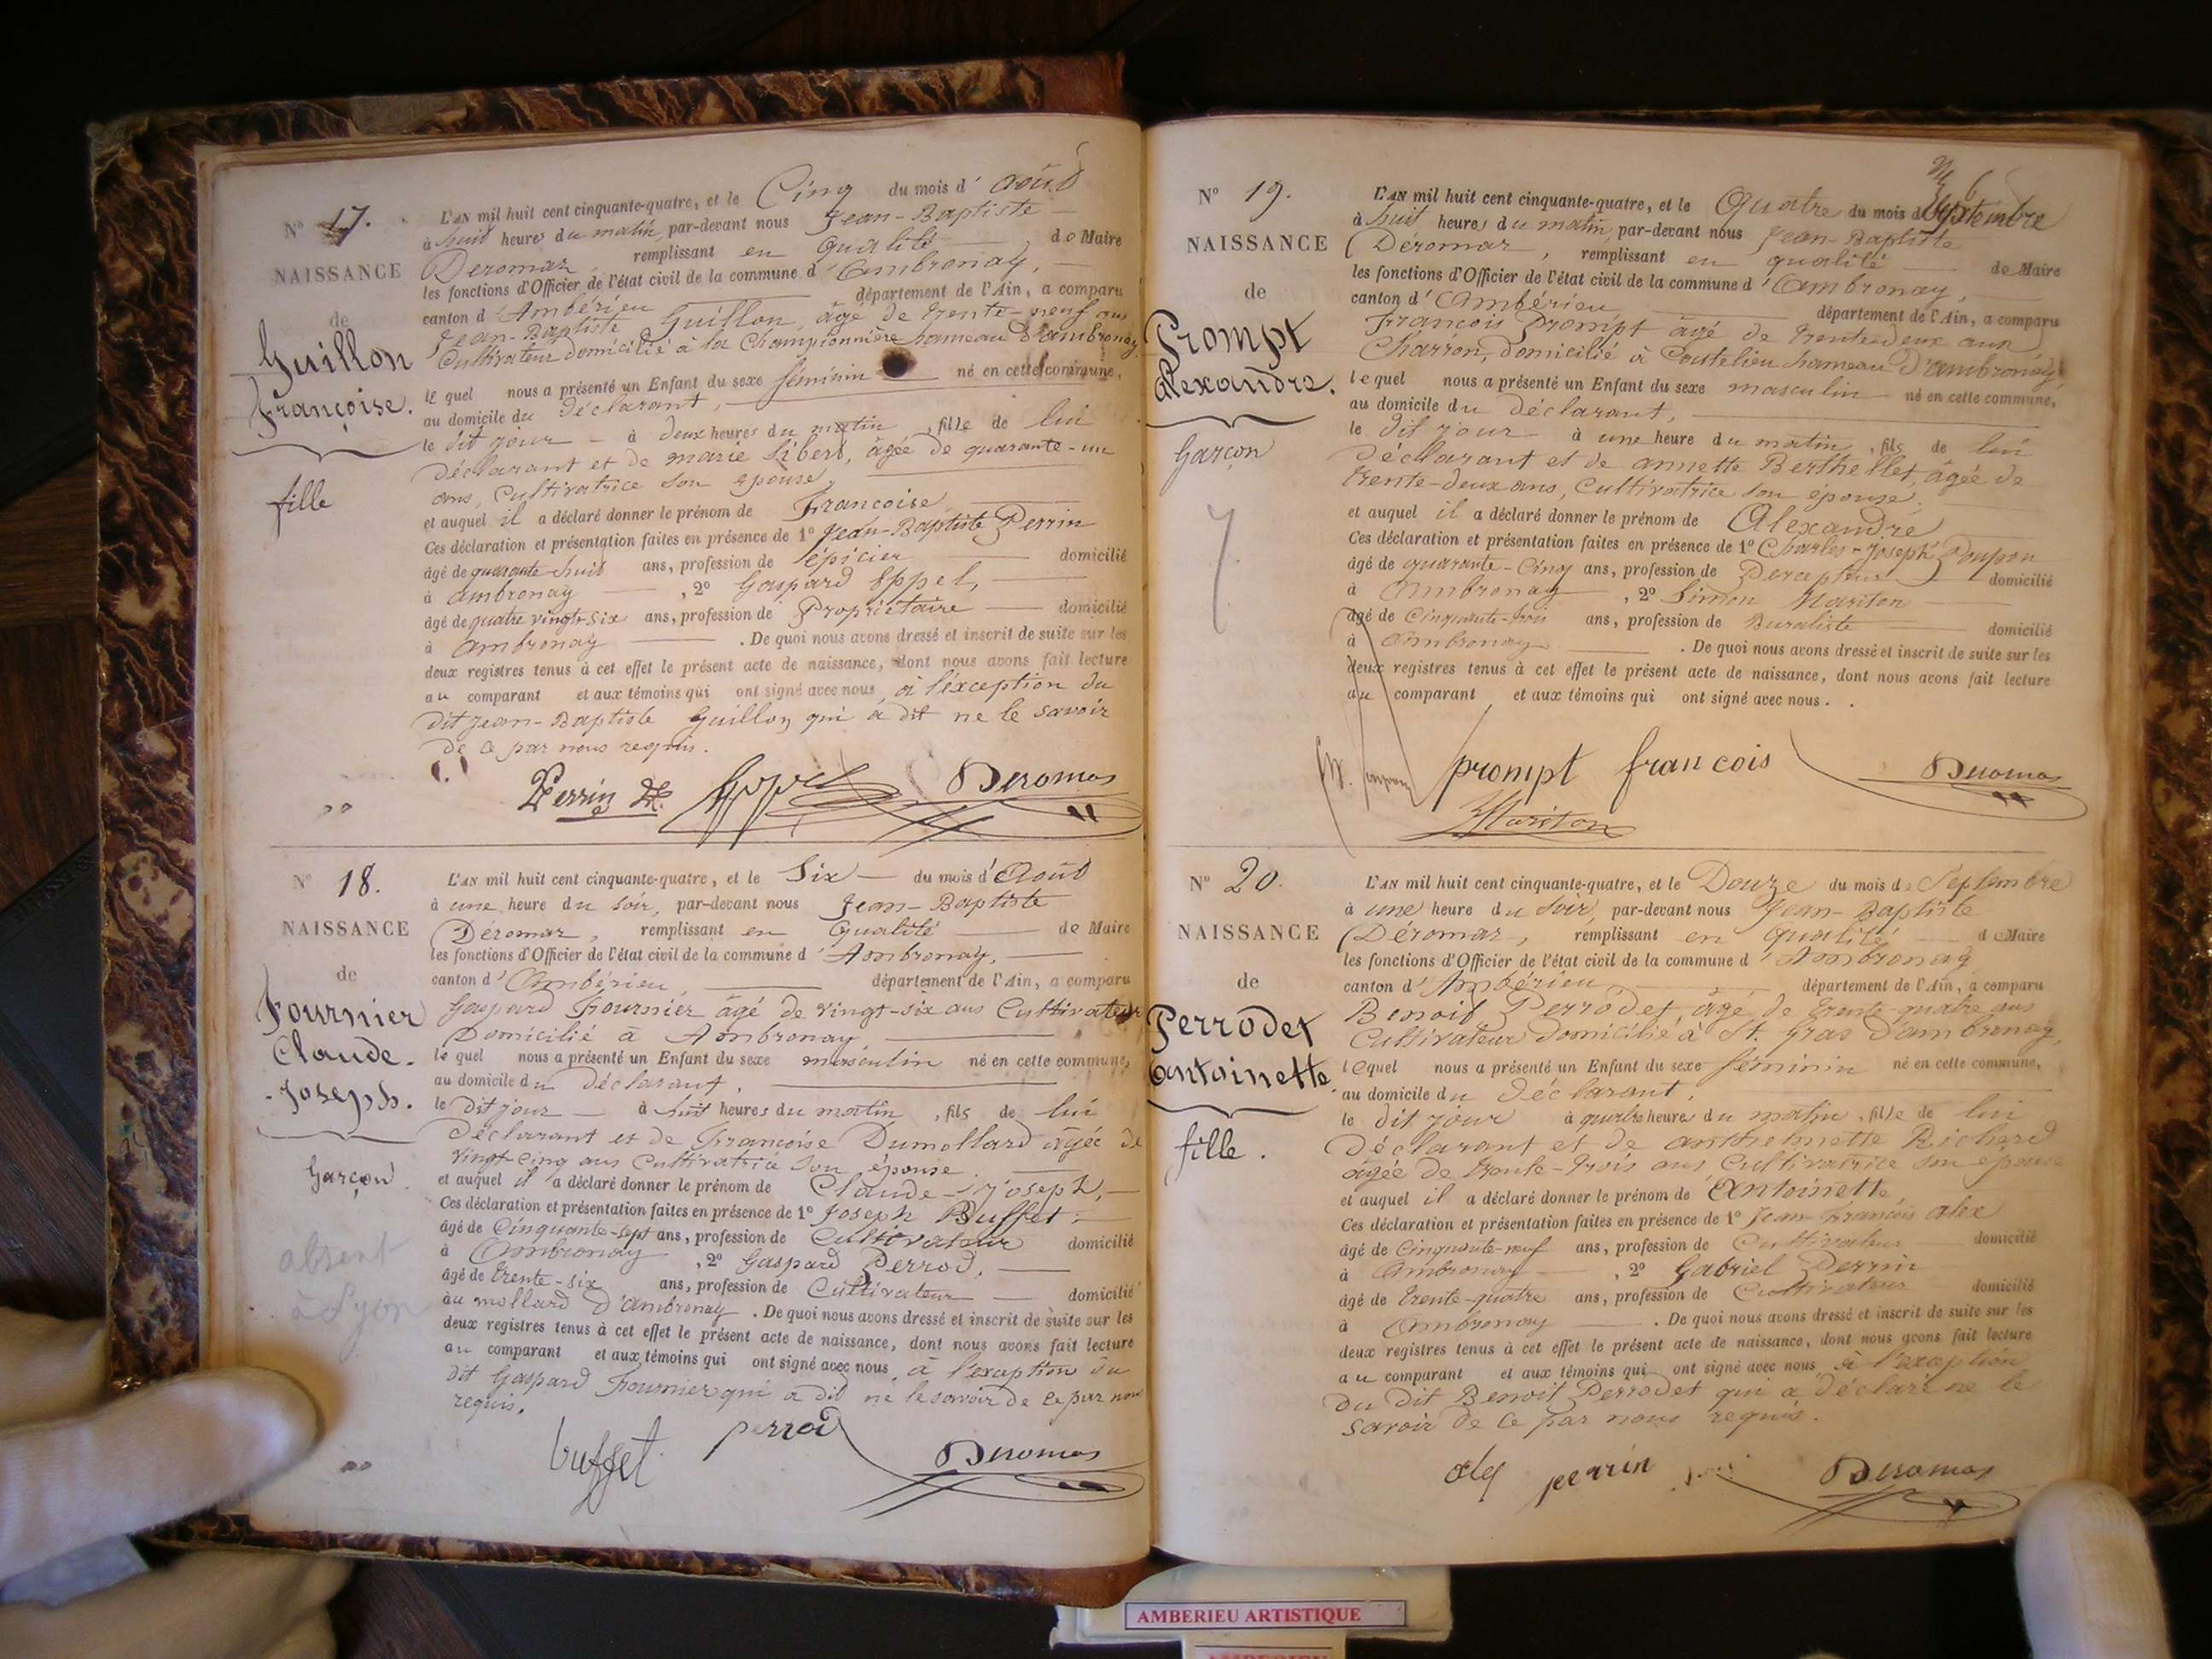 N° 17.
NAISSANCE
de
Guillon
Françoise.
fille
L'AN mil huit cent cinquante-quatre, et le Cinq du mois d' août
à huit heures du matin, par-devant nous Jean-Baptiste
Deromas, remplissant en qualité de Maire
les fonctions d'Officier de l'état civil de la commune d' Ambronay,
canton d' Ambérieu département de l'Ain, a comparu
Jean-Baptiste Guillon, âgé de trente-neuf ans
Cultivateur domicilié à la Championnière hameau d'ambronay,
le quel nous a présenté un Enfant du sexe féminin né en cette commune,
au domicile du déclarant,
le dit jour à deux heures du matin, fille de lui
déclarant et de marie Libert, âgée de quarante-un
ans, Cultivatrice son épouse,
et auquel il a déclaré donner le prénom de Francoise
Ces déclaration et présentation faites en présence de 1° Jean-Baptiste Perrin
âgé de quarante-huit ans, profession de épicier domicilié
à ambronay, 2° Gaspard Eppel,
âgé de quatre vingt-six ans, profession de Propriétaire domicilié
à ambronay. De quoi nous avons dressé et inscrit de suite sur les
deux registres tenus à cet effet le présent acte de naissance, dont nous avons fait lecture
au comparant et aux témoins qui ont signé avec nous, à l'éxception du
dit Jean-Baptiste Guillon qui a dit ne le savoir
de ce par nous requis.
Perrin Deromas
N° 18.
NAISSANCE
de
Fournier
Claude.
-Joseph.
Garçon.
absent
à Lyon
L'AN mil huit cent cinquante-quatre, et le Six du mois d' Août
à une heure du soir, par-devant nous Jean-Baptiste
Déromas, remplissant en qualité de Maire
les fonctions d'Officier de l'état civil de la commune d' Ambronay,
canton d' Ambérieu, département de l'Ain, a comparu
Gaspard Fournier âgé de vingt-six ans Cultivateur
Domicilié à Ambronay
le quel nous a présenté un Enfant du sexe masculin né en cette commune,
au domicile du déclarant.
le dit jour à huit heures du matin, fils de lui
déclarant et de Francoise Dumollard âgée de
vingt-cinq ans Cultivatrice son épouse
et auquel il a déclaré donner le prénom de Claude-Joseph,
Ces déclaration et présentation faites en présence de 1° Joseph Buffet,
âgé de Cinquante-sept ans, profession de Cultivateur domicilié
à Ambronay, 2° Gaspard Perrod,
âgé de trente-six ans, profession de Cultivateur domicilié
au mollard d'ambronay. De quoi nous avons dressé et inscrit de suite sur les
deux registres tenus à cet effet le présent acte de naissance, dont nous avons fait lecture
au comparant et aux témoins qui ont signé avec nous, à l'exception du
dit Gaspard Fournier qui a dit ne le savoir de ce par nous
requis.
buffet perrod Deromas
N° 19.
NAISSANCE
de
Prompt
Alexandre.
Garçon
L'AN mil huit cent cinquante-quatre, et le Quatre du mois de Septembre
à huit heures du matin, par-devant nous Jean-Baptiste
Déromas, remplissant en qualité de Maire
les fonctions d'Officier de l'état civil de la commune d' Ambronay,
canton d' Ambérieu, département de l'Ain, a comparu
François Prompt âgé de trente-deux ans
Charron, domicilié à Coutelieu hameau d'ambronay,
le quel nous a présenté un Enfant du sexe masculin né en cette commune,
au domicile du déclarant,
le dit jour à une heure du matin, fils de lui
déclarant et de annette Berthellet, âgée de
trente-deux ans, Cultivatrice son épouse,
et auquel il a déclaré donner le prénom de Alexandre
Ces déclaration et présentation faites en présence de 1° Charles-Joseph Poupon
âgé de quarante-Cinq ans, profession de Percepteur domicilié
à Ambronay, 2° Simon Mariton
âgé de Cinquante-trois ans, profession de Buraliste domicilié
à Ambronay. De quoi nous avons dressé et inscrit de suite sur les
deux registres tenus à cet effet le présent acte de naissance, dont nous avons fait lecture
au comparant et aux témoins qui ont signé avec nous.
prompt francois Deromas
Mariton
N° 20.
NAISSANCE
de
Perrodet
Antoinette.
fille.
L'AN mil huit cent cinquante-quatre, et le Douze du mois de Septembre
à une heure du soir, par-devant nous Jean-Baptiste
Déromas, remplissant en qualité de Maire
les fonctions d'Officier de l'état civil de la commune d' Ambronay
canton d' Ambérieu, département de l'Ain, a comparu
Benoit Perrodet, âgé de trente-quatre ans
Cultivateur domicilié à St. Gras d'ambronay,
lequel nous a présenté un Enfant du sexe féminin né en cette commune,
au domicile du déclarant,
le dit jour à quatre heures du matin, fille de lui
déclarant et de anthelmette Richard
âgée de trente-trois ans Cultivatrice son épouse
et auquel il a déclaré donner le prénom de Antoinette,
Ces déclaration et présentation faites en présence de 1° Jean-Francois Alex
âgé de Cinquante-neuf ans, profession de Cultivateur domicilié
à Ambronay, 2° Gabriel Perrin
âgé de trente-quatre ans, profession de Cultivateur domicilié
à Ambronay. De quoi nous avons dressé et inscrit de suite sur les
deux registres tenus à cet effet le présent acte de naissance, dont nous avons fait lecture
au comparant et aux témoins qui ont signé avec nous à l'exception
du dit Benoit Perrodet qui a déclaré ne le
savoir de ce par nous requis.
alex perrin Deromas
AMBERIEU ARTISTIQUE
AMBERIEU